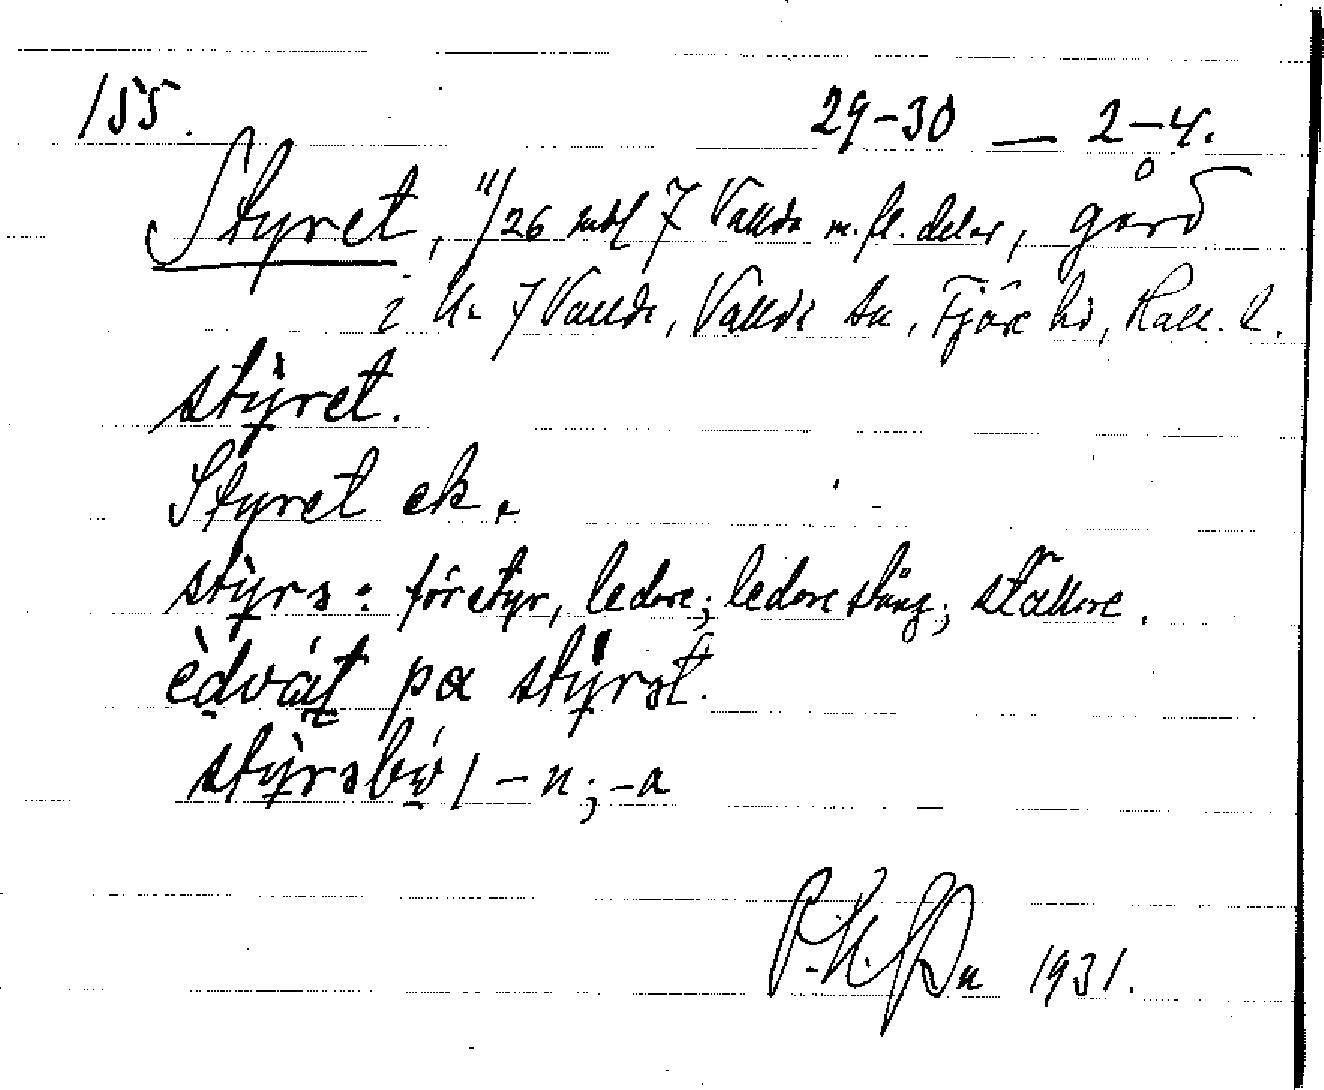 155. 29-30 — 2-4.
Styret, 11/26 mtl 7 Vallda m.fl. delar, gård
i N:r 7 Vallda, Vallda sn, Fjäre hd, Hall. l.
stỳret.
Styret ek.
stỳrə: förstyr, ledare; ledare stång; ställare.
èdvát pɑ stỳrət.
stỳrəbó / -n; -a
1931.